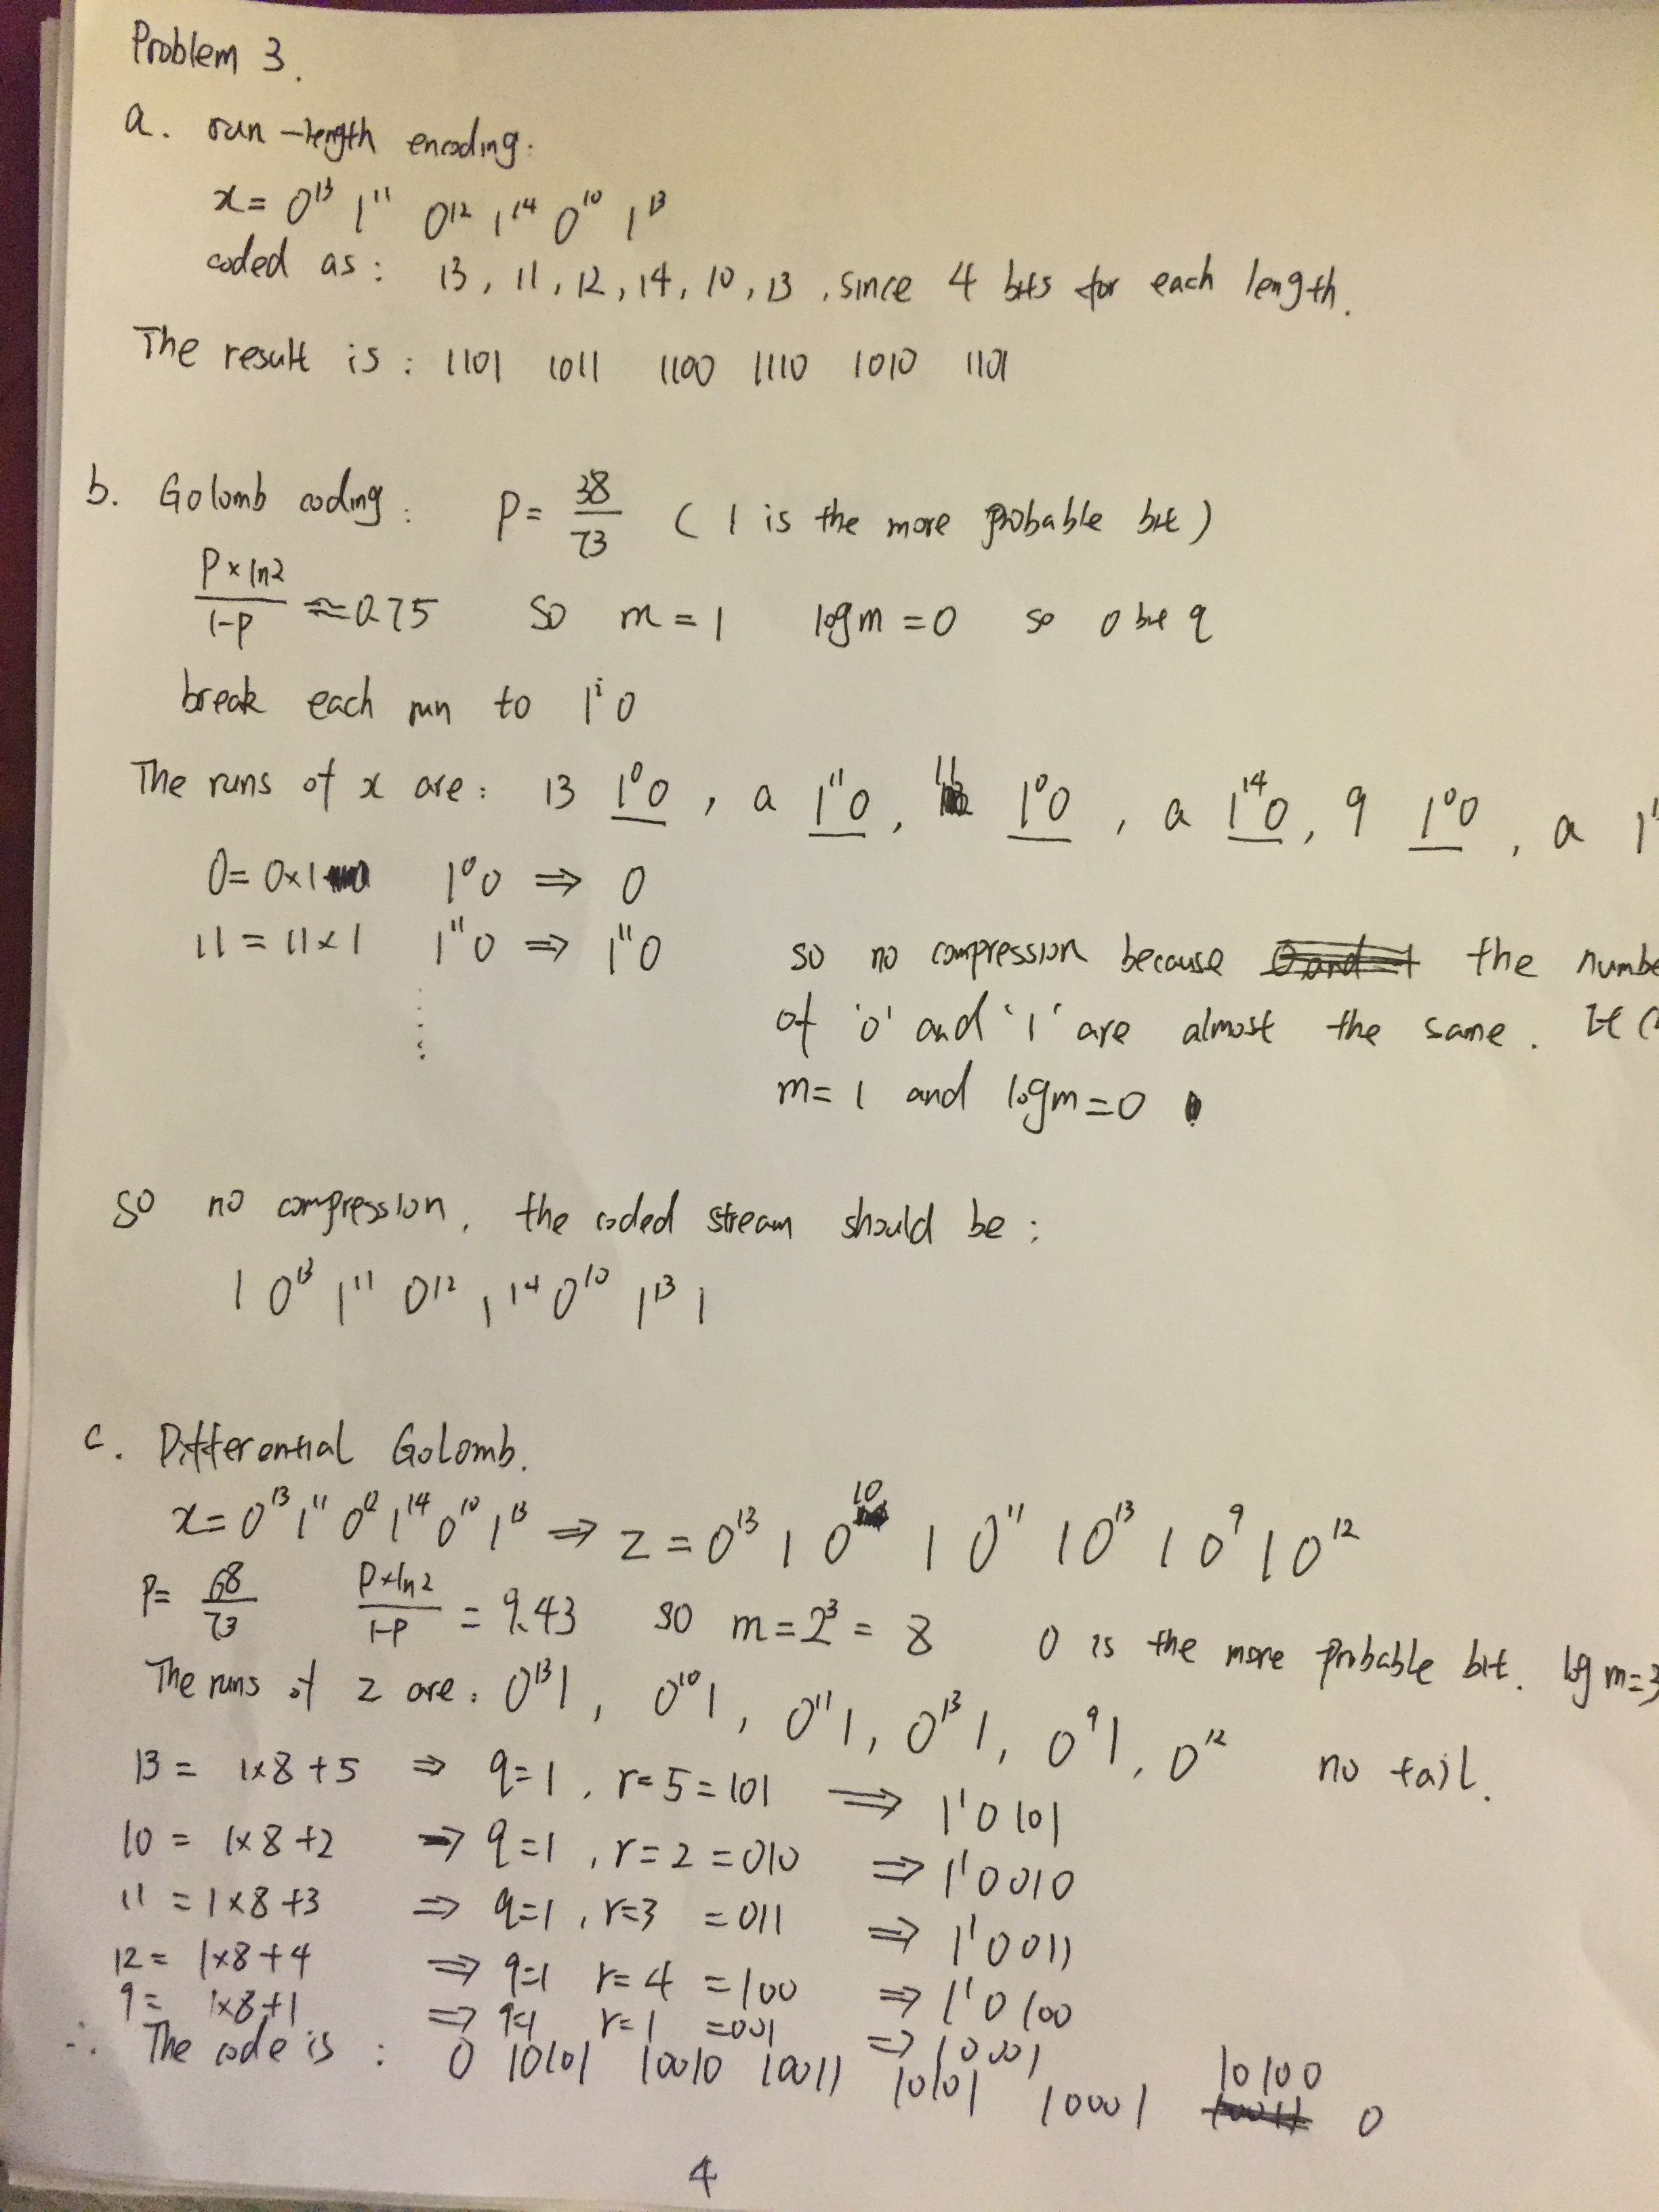 Problem 3.
a. run-length encoding.
x = 0¹³ 1¹¹ 0¹² 1¹⁴ 0¹⁰ 1¹³
coded as: 13, 11, 12, 14, 10, 13, since 4 bits for each length.
The result is: 1101 1011 1100 1110 1010 1101
b. Golomb coding: P = 38/73 (1 is the more probable bit)
P×ln2/1-P ≈ 0.75 so m = 1 log m = 0 so 0 bit q
break each run to 1ⁱ0
The runs of x are: 13 1⁰0, a 1¹¹0, 11 1⁰0, a 1¹⁴0, 9 1⁰0, a 1
0 = 0×1 1⁰0 ⇒ 0
11 = 11×1 1¹¹0 ⇒ 1¹¹0 so no compression because the
of '0' and '1' are almost the same.
m = 1 and log m = 0
so no compression, the coded stream should be:
1 0¹³ 1¹¹ 0¹² 1¹⁴ 0¹⁰ 1¹³ 1
c. Differential Golomb.
x = 0¹³ 1¹¹ 0¹² 1¹⁴ 0¹⁰ 1¹³ ⇒ z = 0¹³ 1 0¹⁰ 1 0¹¹ 1 0¹³ 1 0⁹ 1 0¹²
P = 68/73 P×ln2/1-P = 9.43 so m = 2³ = 8 0 is the more probable bit. log m = 3
The runs of z are: 0¹³1, 0¹⁰1, 0¹¹1, 0¹³1, 0⁹1, 0¹² no tail.
13 = 1×8+5 ⇒ q=1, r=5=101 ⇒ 1¹0101
10 = 1×8+2 ⇒ q=1, r=2=010 ⇒ 1¹0010
11 = 1×8+3 ⇒ q=1, r=3=011 ⇒ 1¹0011
12 = 1×8+4 ⇒ q=1 r=4=100 ⇒ 1¹0100
9 = 1×8+1 ⇒ q=1 r=1=001 ⇒ 10001
∴ The code is: 0 10101 10010 10011 10101 10001 10100 0
4